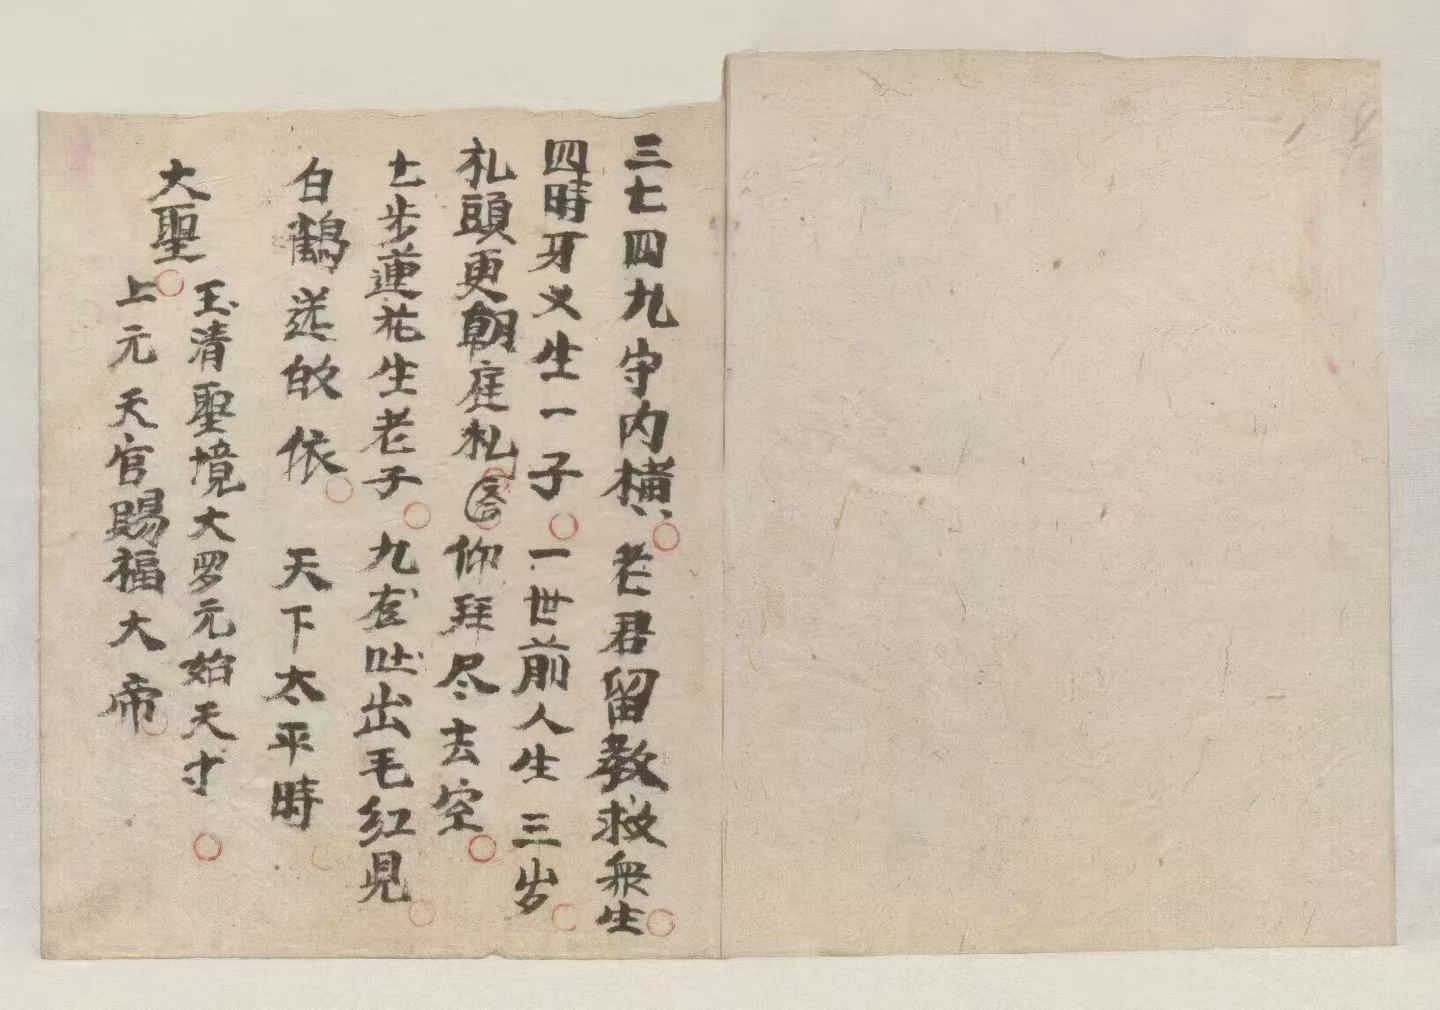 三七四九守内横老君留教救衆生
四時牙义生一子一世前人生三岁
礼頭更朝庭礼仰拜尽去空
七步蓮花生老子九吐出毛红見
白鶴送的依天下太平時
大聖玉清聖境大罗元始天寸
上元天官賜福大帝